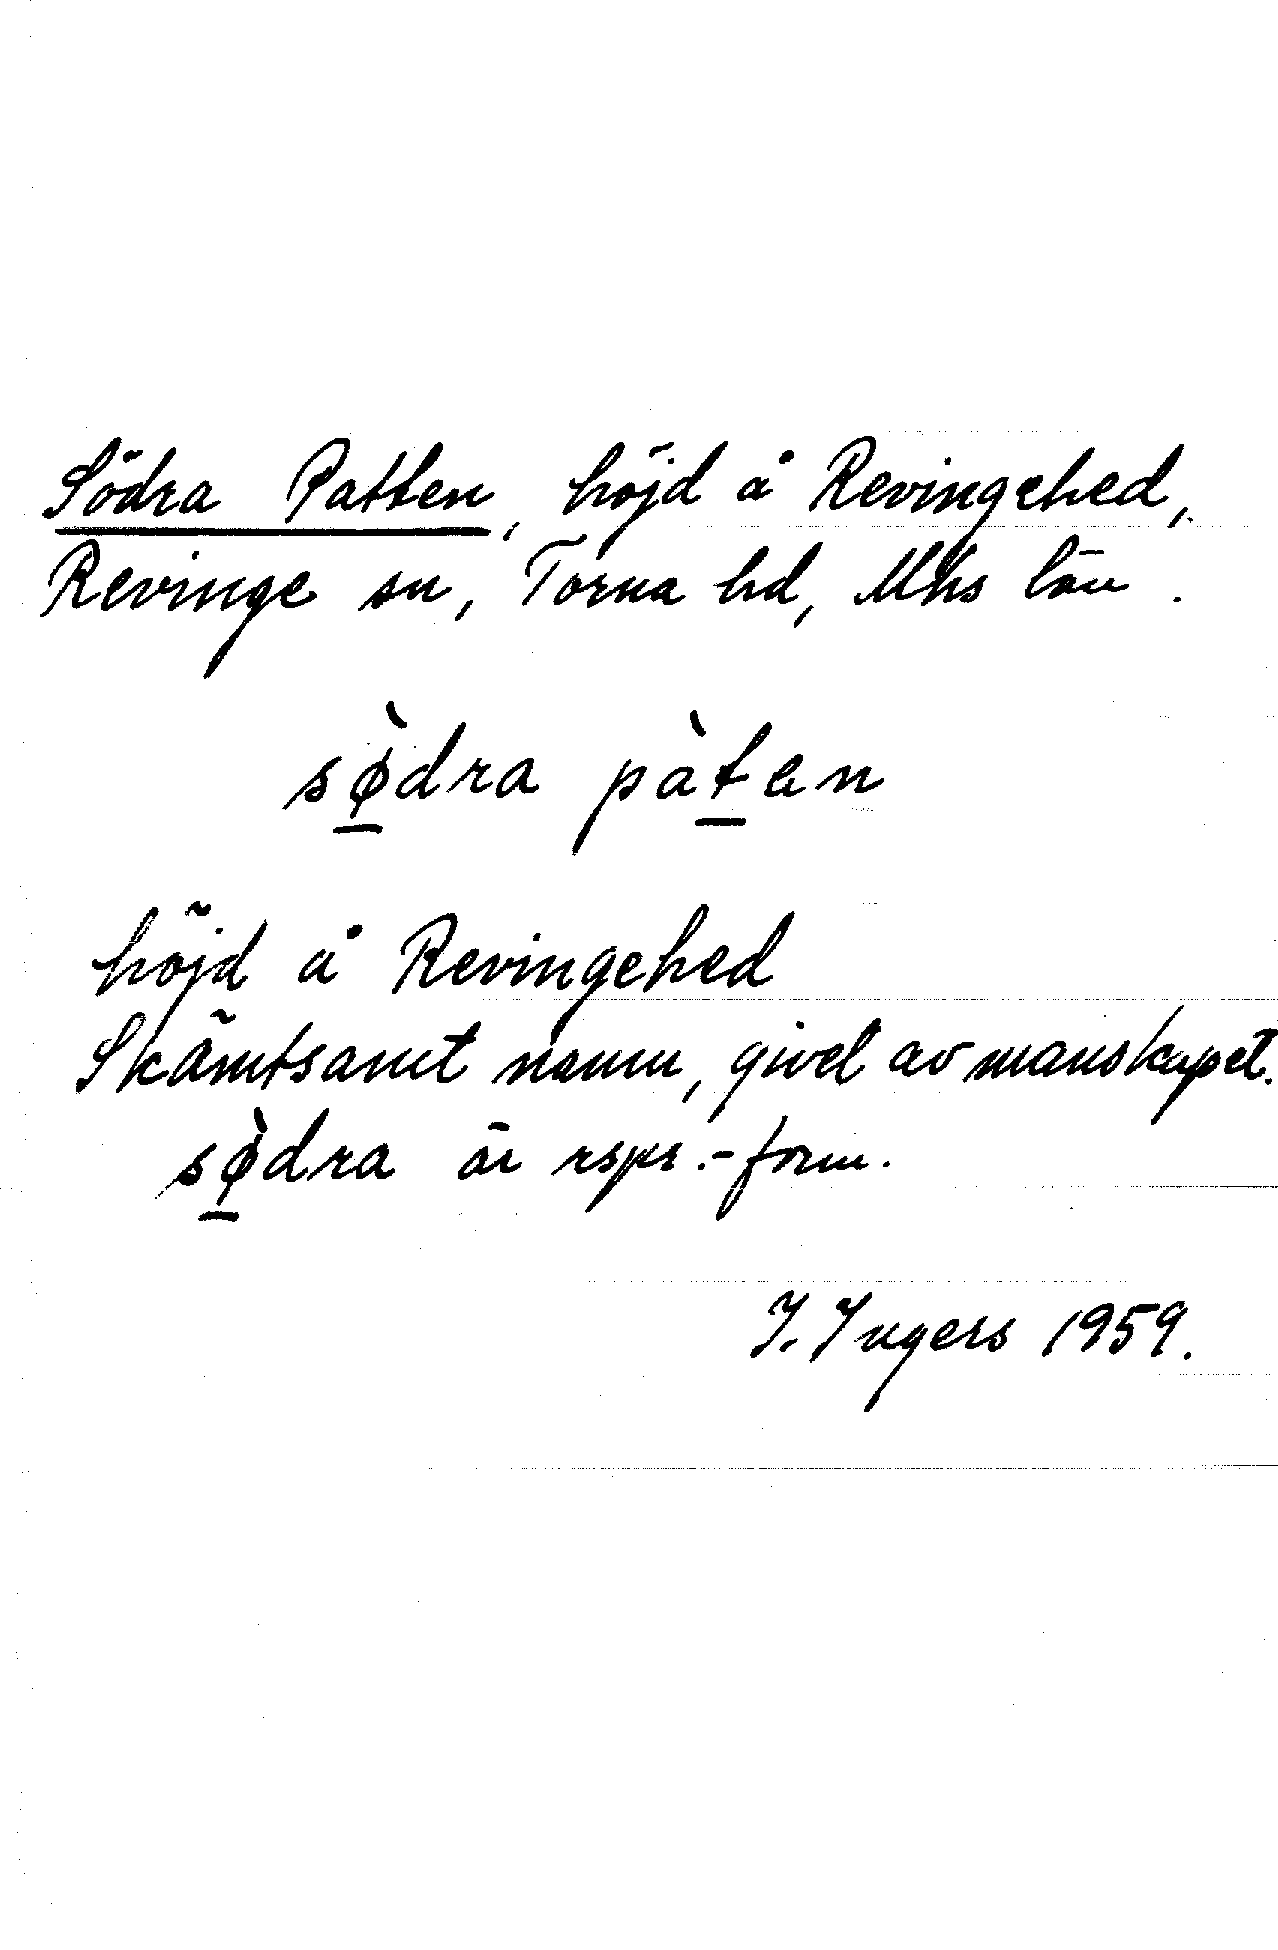 Södra Patten, höjd å Revingehed,
Revinge sn, Torna hd, Mhs län.
sø̀dra pàten
höjd å Revingehed
Skämtsamt namn, givet av manskapet.
sø̀dra är rspr.-form.
I. Ingers 1959.